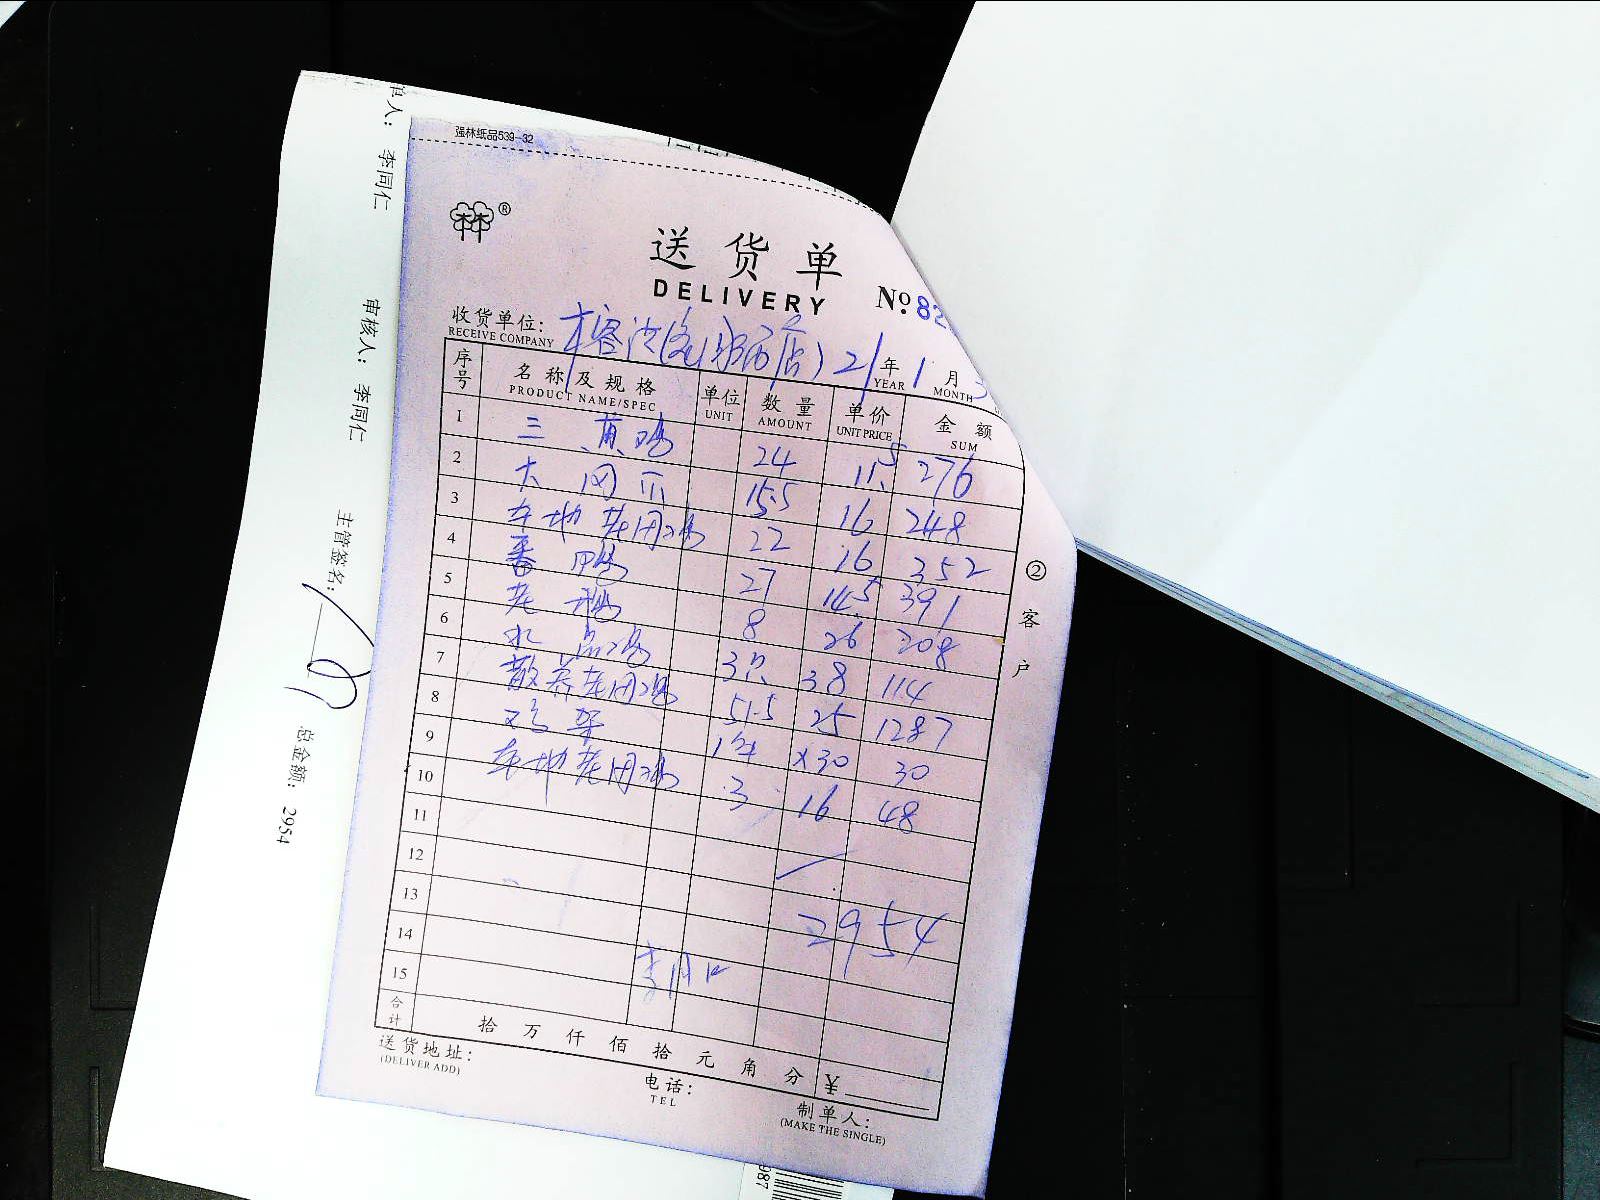 强林纸品539-32
林林®
送货单
DELIVERY
№ 82
收货单位:
RECEIVE COMPANY
21年1月3
YEAR MONTH
序号 名称及规格 单位 数量 单价 金额
PRODUCT NAME/SPEC UNIT AMOUNT UNIT PRICE SUM
1 三黄鸡 24 11.5 276
2 15.5 16 248
3 本地老母鸡 22 16 352
4 番鸭 27 14.5 391
5 老鸭 8 26 208
6 3只 38 114
7 散养老母鸡 51.5 25 1287
8 鸡架 1件 ×30 30
9 本地老母鸡 3 16 48
10
11
12
13 2954
14
15
合计 拾万仟佰拾元角分 ¥
送货地址:
(DELIVER ADD)
电话:
TEL
制单人:
(MAKE THE SINGLE)
②客户
单人: 李同仁
审核人: 李同仁
主管签名:
总金额: 2954
987